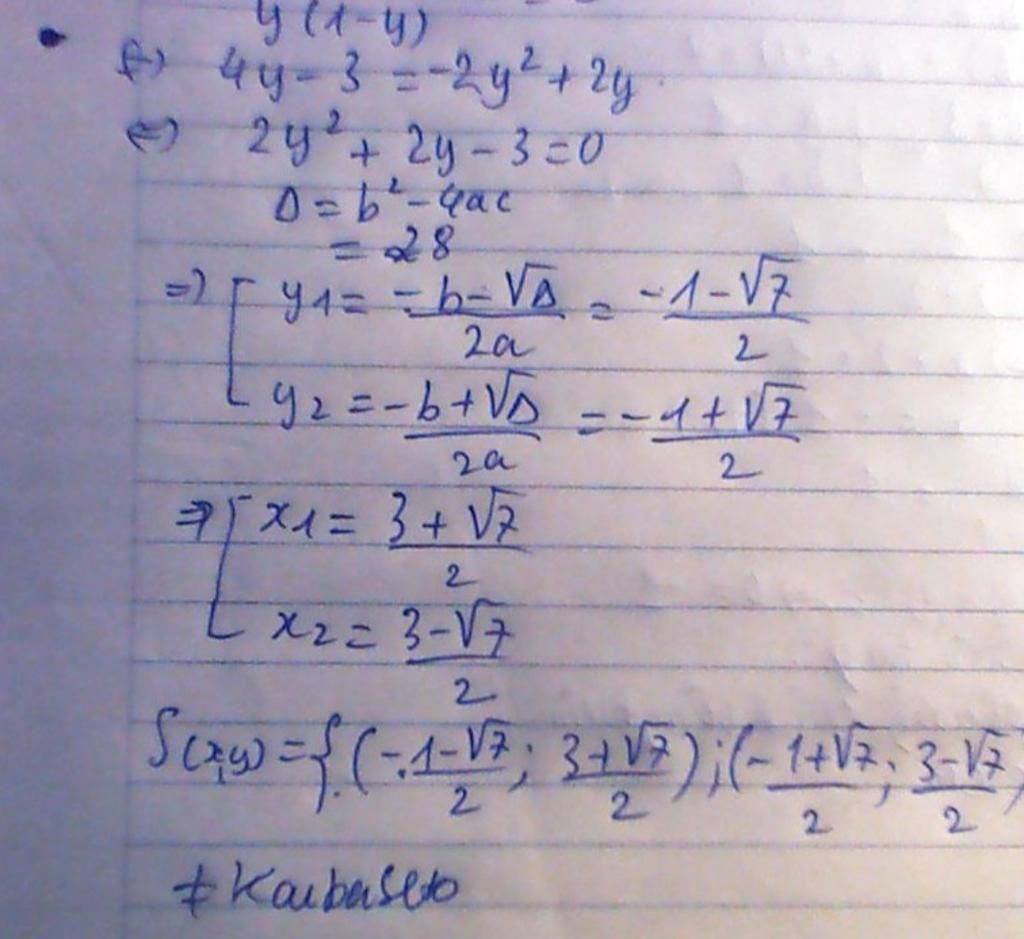 y(1-y)
⇔ 4y - 3 = -2y² + 2y
⇔ 2y² + 2y - 3 = 0
Δ = b² - 4ac
= 28
⇒ [ y1 = (-b - √Δ)/2a = (-1 - √7)/2
y2 = (-b + √Δ)/2a = (-1 + √7)/2
⇒ [ x1 = (3 + √7)/2
x2 = (3 - √7)/2
S(x,y) = { ((-1 - √7)/2 ; (3 + √7)/2) ; ((-1 + √7)/2 ; (3 - √7)/2)